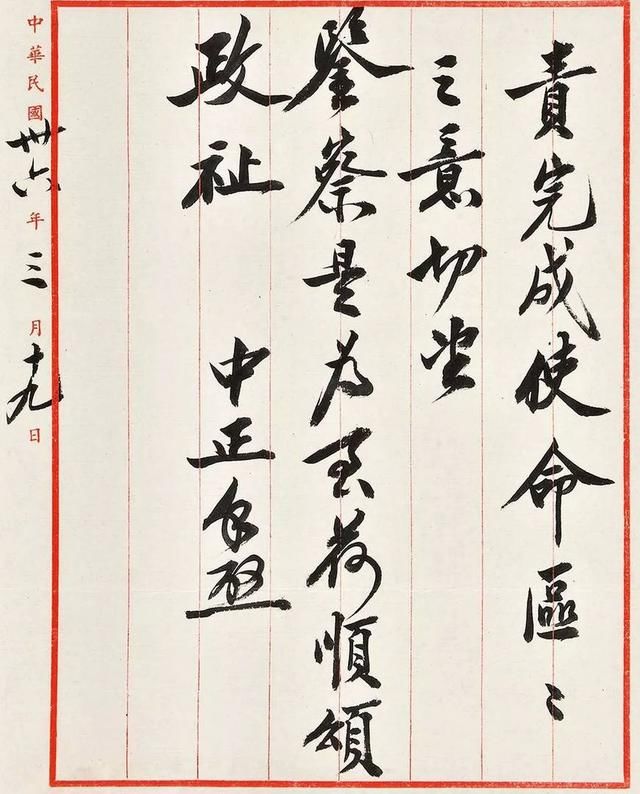 責完成使命區〻
之意切望
鑒察是為至荷順頌
政祉　中正手啟
中華民國卅六年三月十九日